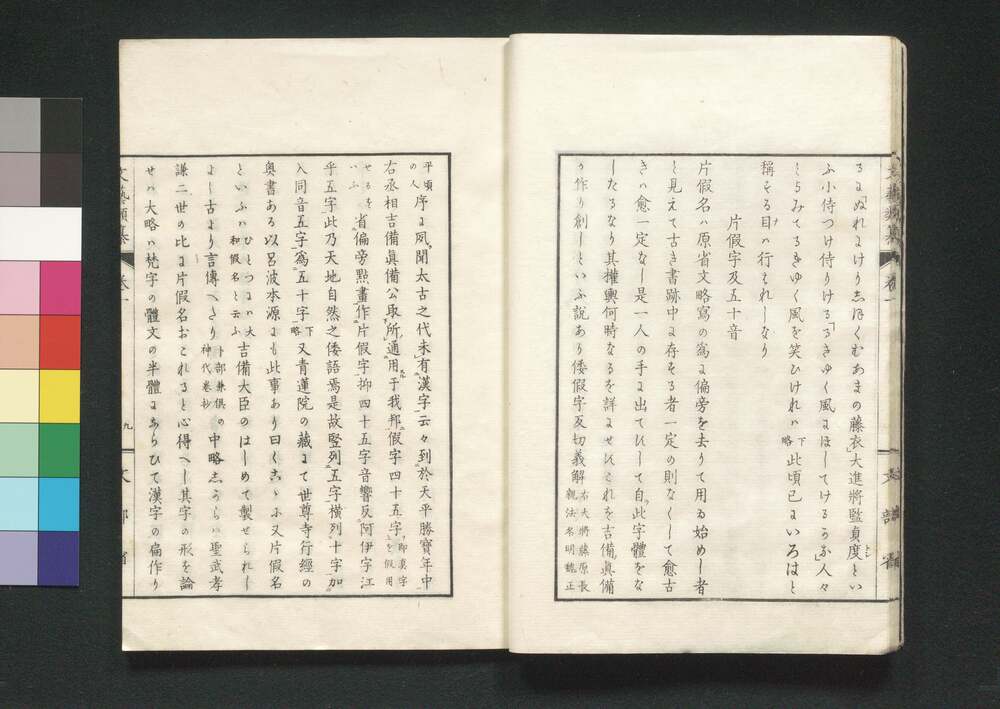 るにぬれにけりしほくむあまの藤衣大進將監貞度とい
ふ小侍つけ侍りける
稱する目は行はれしなり
片假字及五十音
片假名ハ原省文略寫の爲に偏旁を去りて用る始めし者
と見えて古き書跡中に存する者一定の則なくして愈古
きハ愈一定なし是一人の手に出てひして自此字體をな
したるなり其權輿何時なるを詳にせひこれを吉備眞備
の作り創しといふ説あり倭假字反切義解 右大將藤原長親法名明魏正
平頃の人 序に夙聞太古之代未有漢字云々到於天平勝寶年中
右丞相吉備眞備公取所通用于我邦假字四十五字 即漢字を假用
せるをいふ 省偏旁點畫作片假字抑四十五字音響反阿伊字江
乎五字此乃天地自然之倭語焉是故竪列五字横列十字加
入同音五字爲五十字 下略 又青蓮院の藏にて世尊寺行經の
奥書ある以呂波本源にも此事あり曰くこゝに又片假名
といふハ ひとつにハ大和假名と云ふ 吉備大臣のはしめて製せられし
よし古より言傳へたり 卜部兼倶の神代卷抄 の中略しうらハ聖武孝
謙二世の比に片假名おこれると心得へし其字の形を論
せハ大略ハ梵字の體文の半體にあらひて漢字の偏作り
文藝類纂 卷一 九 文部省